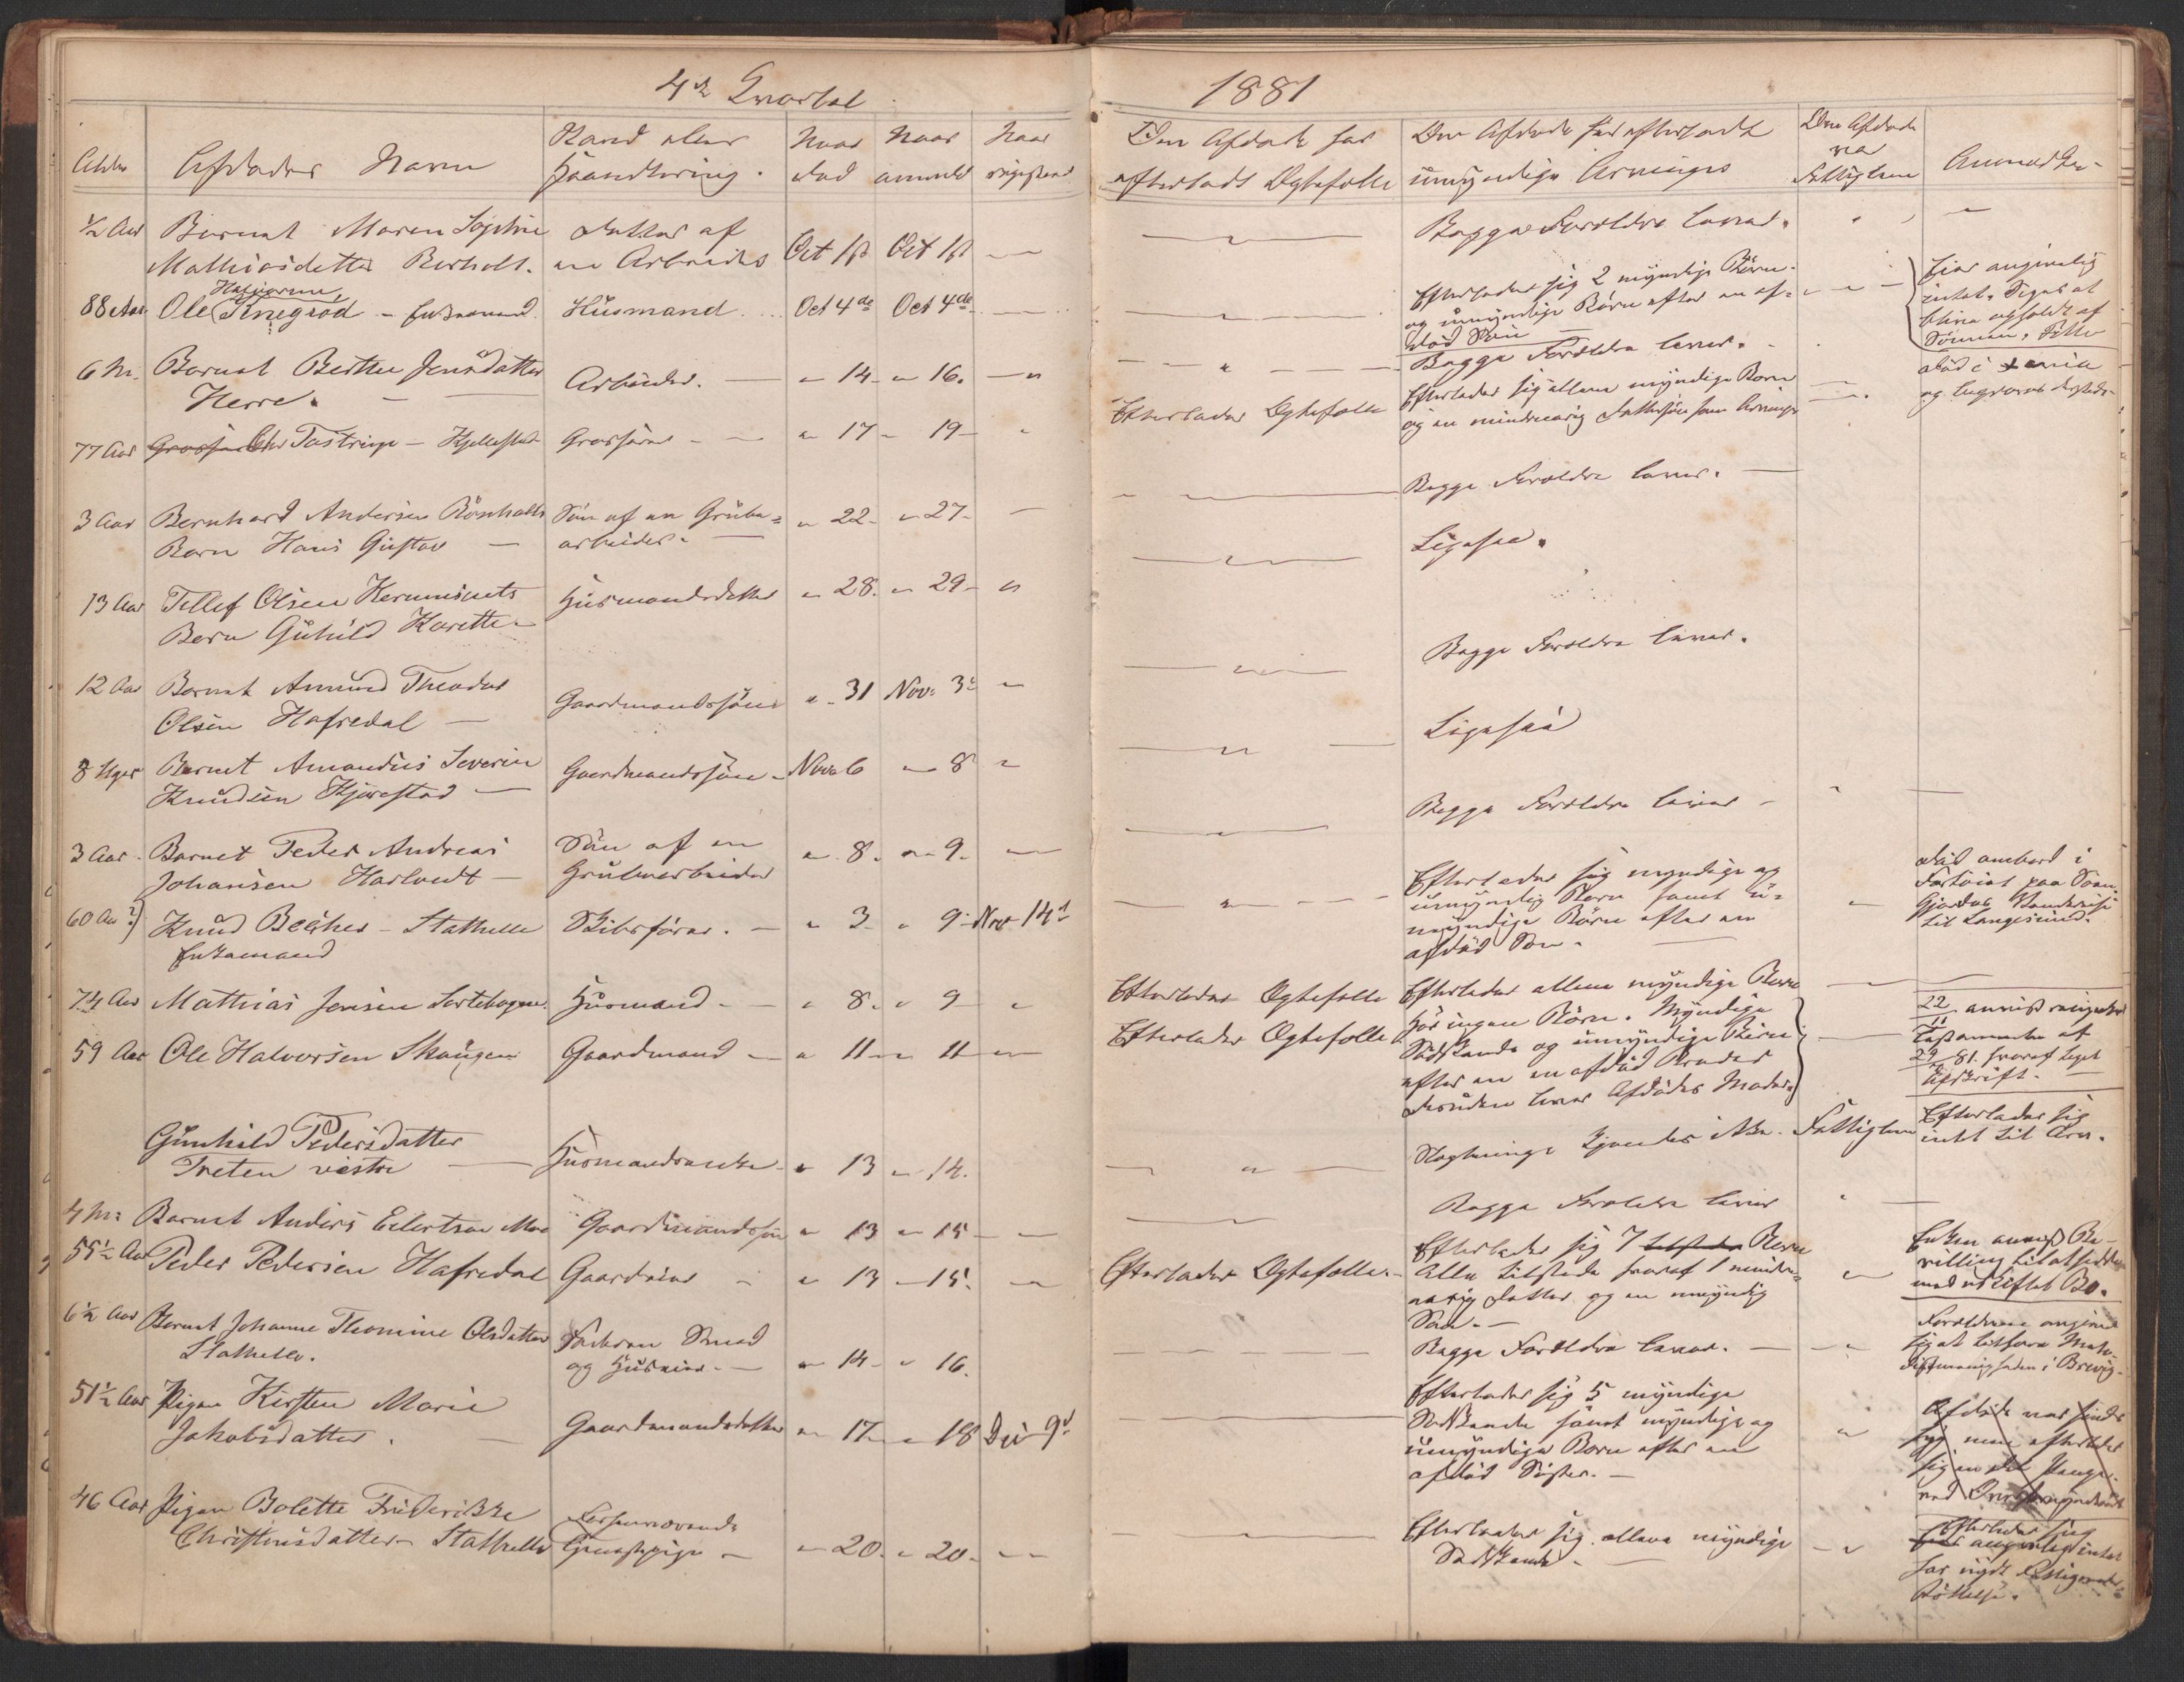 4de Qvartal 1881
Alder
Afdødes Navn
Stand eller
Haandtering.
Naar
død
Naar
anmeldt
Naar
registreret
Den Afdøde har
efterladt Ægtefælle
Den Afdøde har efterladt
umyndige Arvinger
Den Afdøde
var
Fattiglem
½ Aar
Barnet Maren Sophie
Mathiasdatter Berholt.
Datter af
en Arbeider
Oct 1st
Oct 1st
Begge Forældre lever.
88 Aar
Halvorsen
Ole Knegrød - Enkemand
Husmand
Oct 4de
Oct 4de
Efterlader sig 2 myndige Børn
og umyndige Børn efter en af-
død Søn
Har angivelig
intet. Siges at
blive opholdt af
6 M.
Barnet Berthe Jensdatter
Herre.
Arbeider.
" 14 " 16.
Begge Forældre lever.
Død i
og begraves dersteds
77 Aar
Chr Tostrup - Kjellestad
Grosserer
" 17 - 19 -
Efterlader Ægtefælle
Efterlader sig allene myndige Børn
og en mindreaarig Dattersøn som Arving
3 Aar
Bernhard Andersen Rønholts
Barn Hans Gustav
Søn af en Grube=
arbeider.
" 22 - " 27 -
Begge Forældre lever.
13 Aar
Tellef Olsen
Barn Guhild Karette
Husmandsdatter
" 28. " 29 - "
Ligesaa.
12 Aar
Barnet Amund Theodor
Olsen Hafredal
Gaardmandssøn
" 31 Nov: 3de
Begge Forældre lever.
8 Uger
Barnet Amandus Severin
Knudsen Kjørestad
Gaardmandssøn
Nov. 6 - 8
Ligesaa
3 Aar
Barnet Peder Andreas
Johansen Harlvedt
Søn af en
Grubearbeider
" 8. " 9.
Begge Forældre lever
60 Aar?)
Knud Becher - Stathelle
Enkemand
Skibsfører.
" 3 - " 9 - Nov 14d
Efterlader sig myndige og
umyndig Børn samt u-
myndige Børn efter en
afdød Søn.
Død ombord i
Fartøiet paa Soon
til Langesund.
74 Aar
Mathias Jensen Sortebogen
Husmand
" 8. " 9 "
Efterlader Ægtefælle
Efterlader allene myndige Børn
59 Aar
Ole Halvorsen Skougen
Gaardmand
" 11 " 11
Efterlader Ægtefælle
Har ingen Børn. Myndige
Sødskende og umyndige Børn
efter en en afdød Broder
desuden lever Afdødes Moder.
22/11
Testamente af
29/ 81. hvoraf taget
Afskrift.
Gunhild Pedersdatter
Treten vestre
Husmandsenke
" 13 " 14.
Slægtninge kjendes ikke.
Fattiglem
Efterlader sig
intet til Arv.
4 M:
Barnet Anders Eilertsen Moe
Gaardmandssøn
" 13 " 15
Begge Forældre lever
55½ Aar
Peder Pedersen Hafredal
Gaardeier
" 13 - 15.
Efterlader Ægtefælle
Efterlader sig 7 Børn
Alle tilstede hvoraf 1 mindre-
aarig Datter og en umyndig
Søn.
Enken anviist Be-
villing til at sidde
med uskiftet Bo.
6½ Aar
Barnet Johanne Thomine Olsdatter
Stathelle.
Faderen Smed
og Huseier.
" 14 - " 16.
Begge Forældre lever.
Forældrene angive
sig at tilhøre Meto-
distmenigheden i Brevig.
51½ Aar
Pigen Kirsten Marie
Jakobsdatter.
Gaardmandsdatter
" 17 " 18 Dec 9d
Efterlader sig 5 myndige
Sødskende samt myndige og
umyndige Børn efter en
afdød Søster.
46 Aar
Pigen Bolette Frederikke
Christensdatter Stathelle
Forhenværende
Tjenestepige
" 20. " 20.
Efterlader sig allene myndige
Sødskende
Efterlader sig
angivelig intet
har nydt Fattigunder-
støttelse.